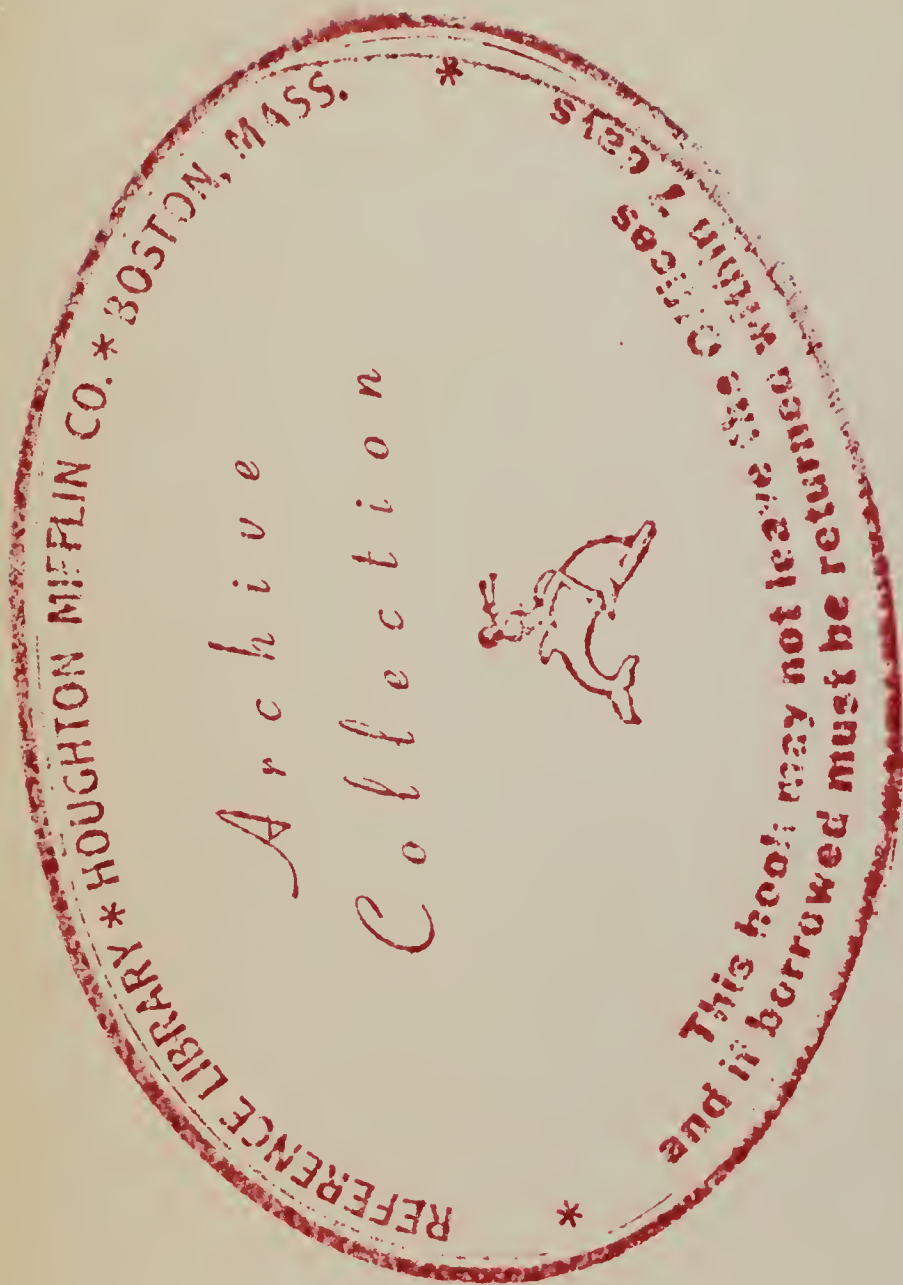 REFERENCE LIBRARY * HOUGHTON MIFFLIN CO. * BOSTON, MASS. *
Archive
Collection
This book may not leave the Offices
* and if borrowed must be returned within 7 days